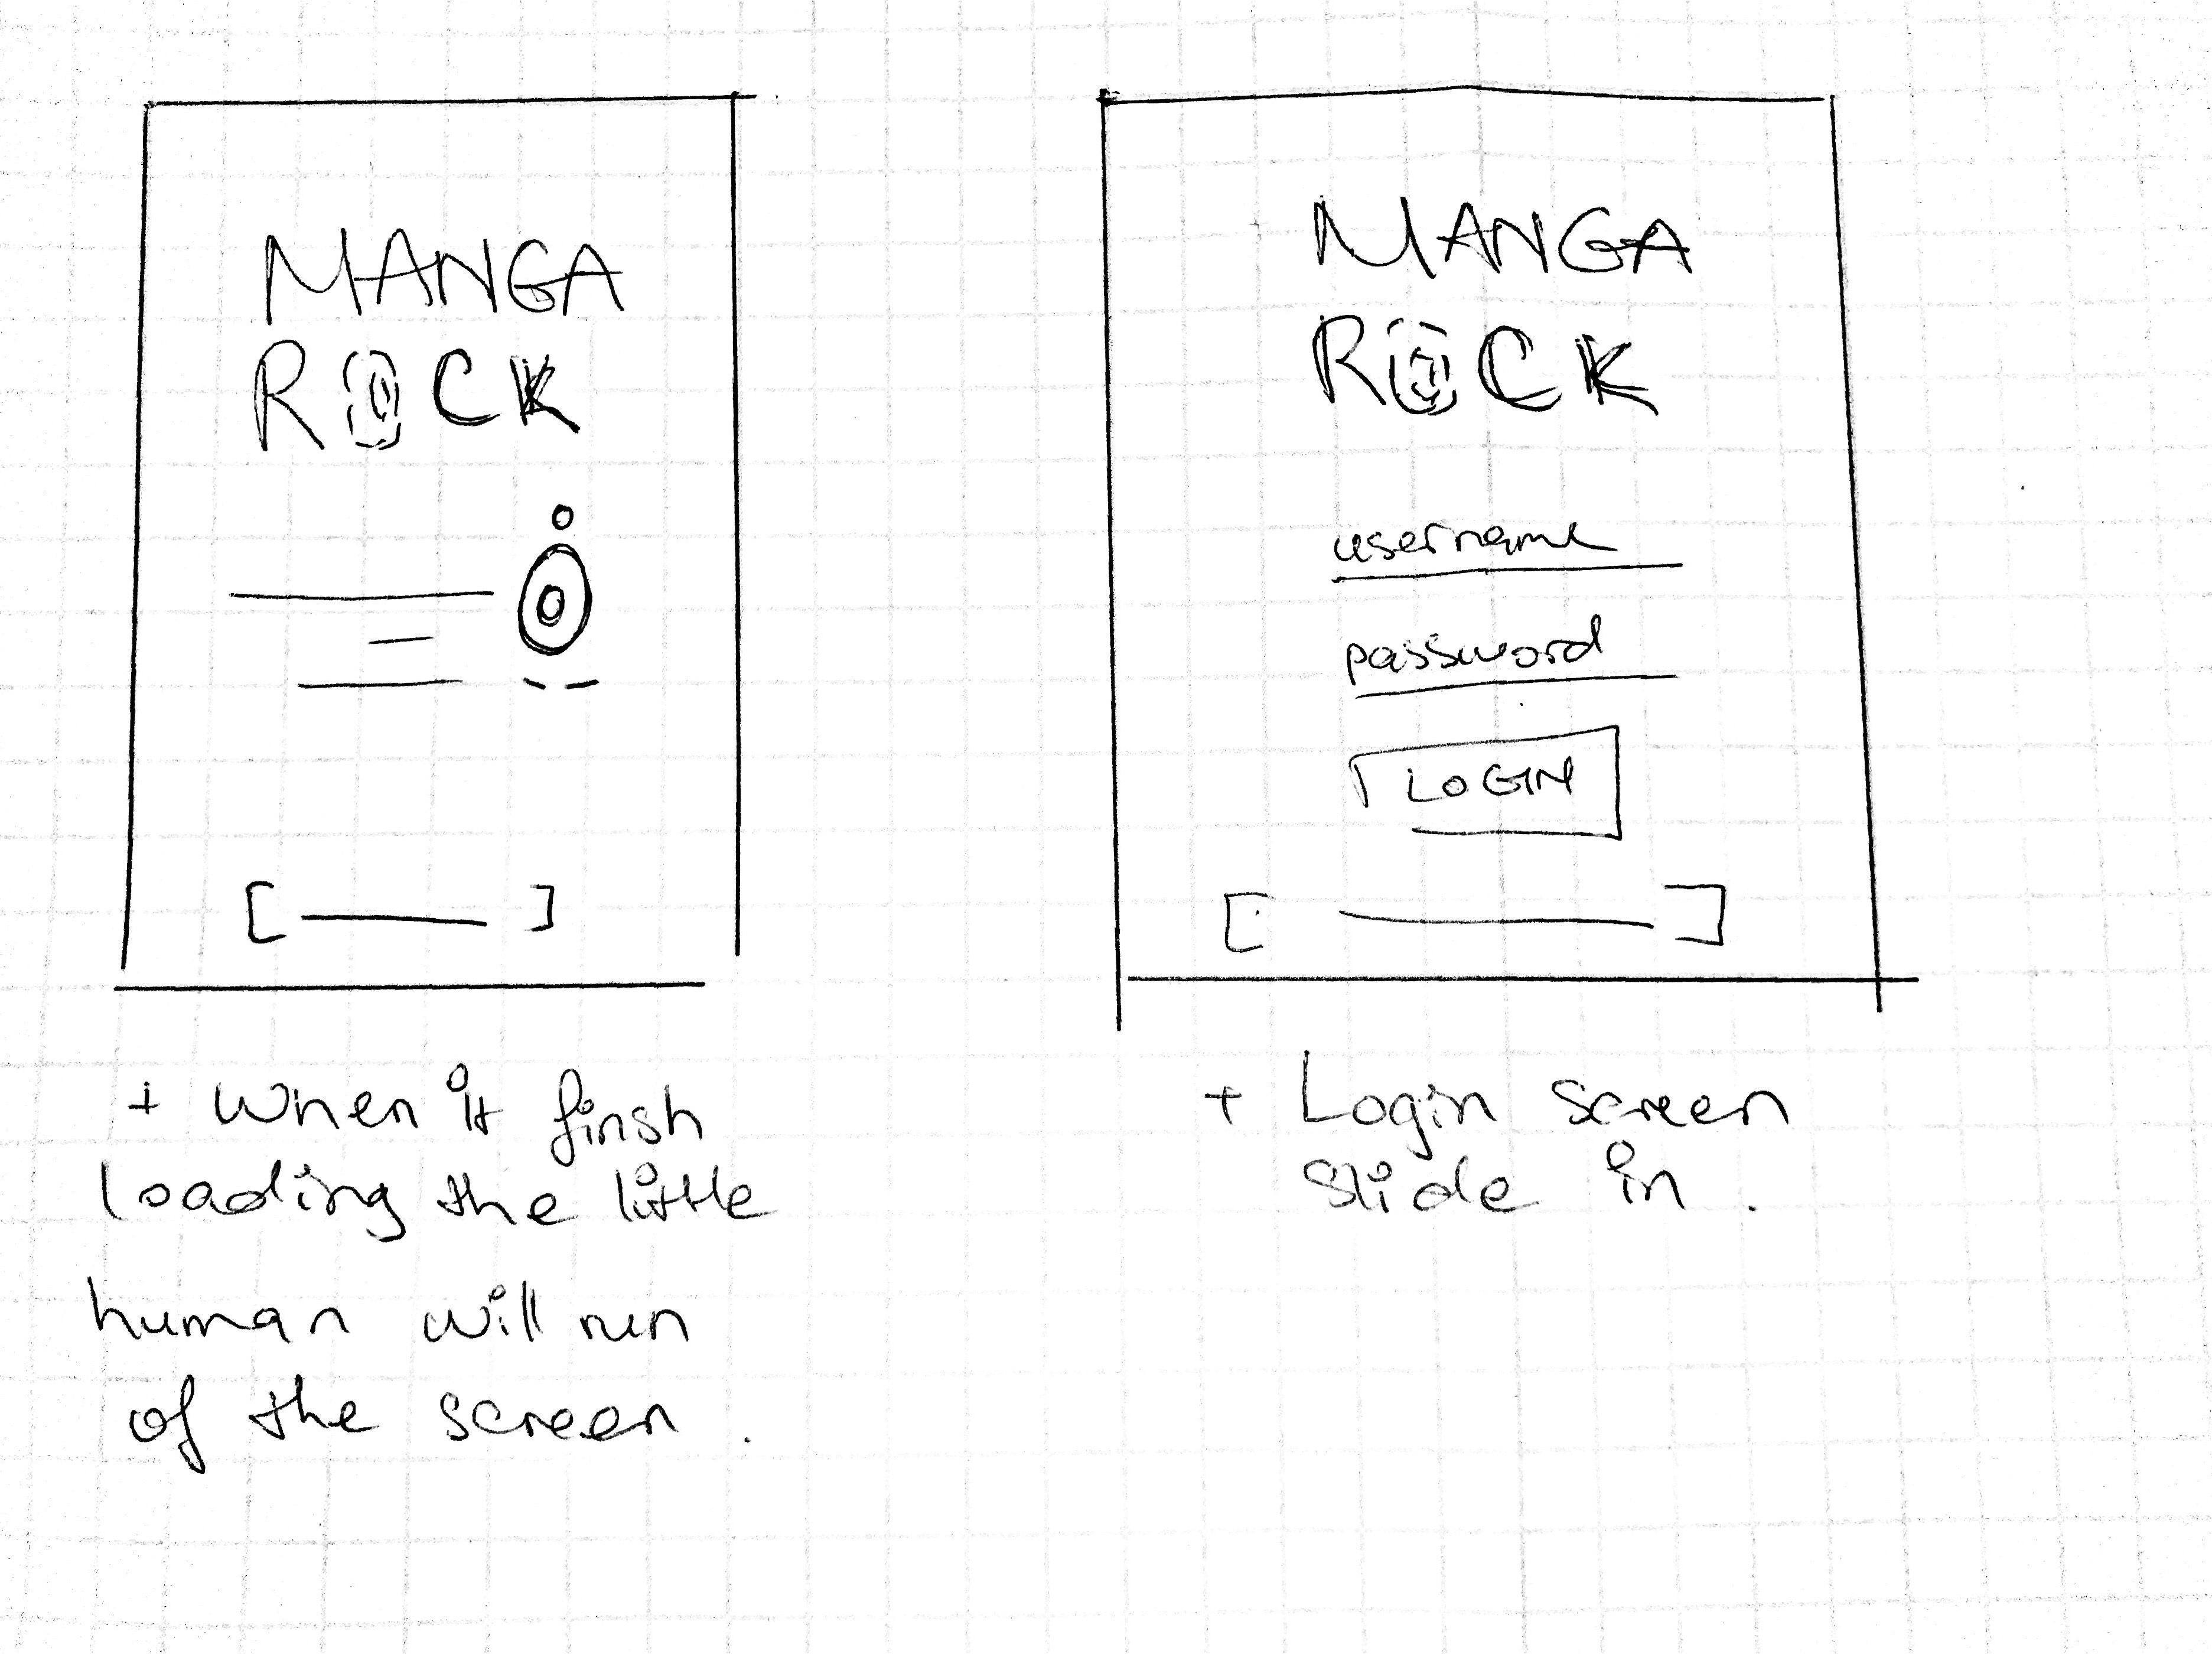 MANGA
ROCK
+ When it finsh
loading the little
human will run
of the screen.
MANGA
ROCK
username
password
LOGIN
+ Login screen
slide in.